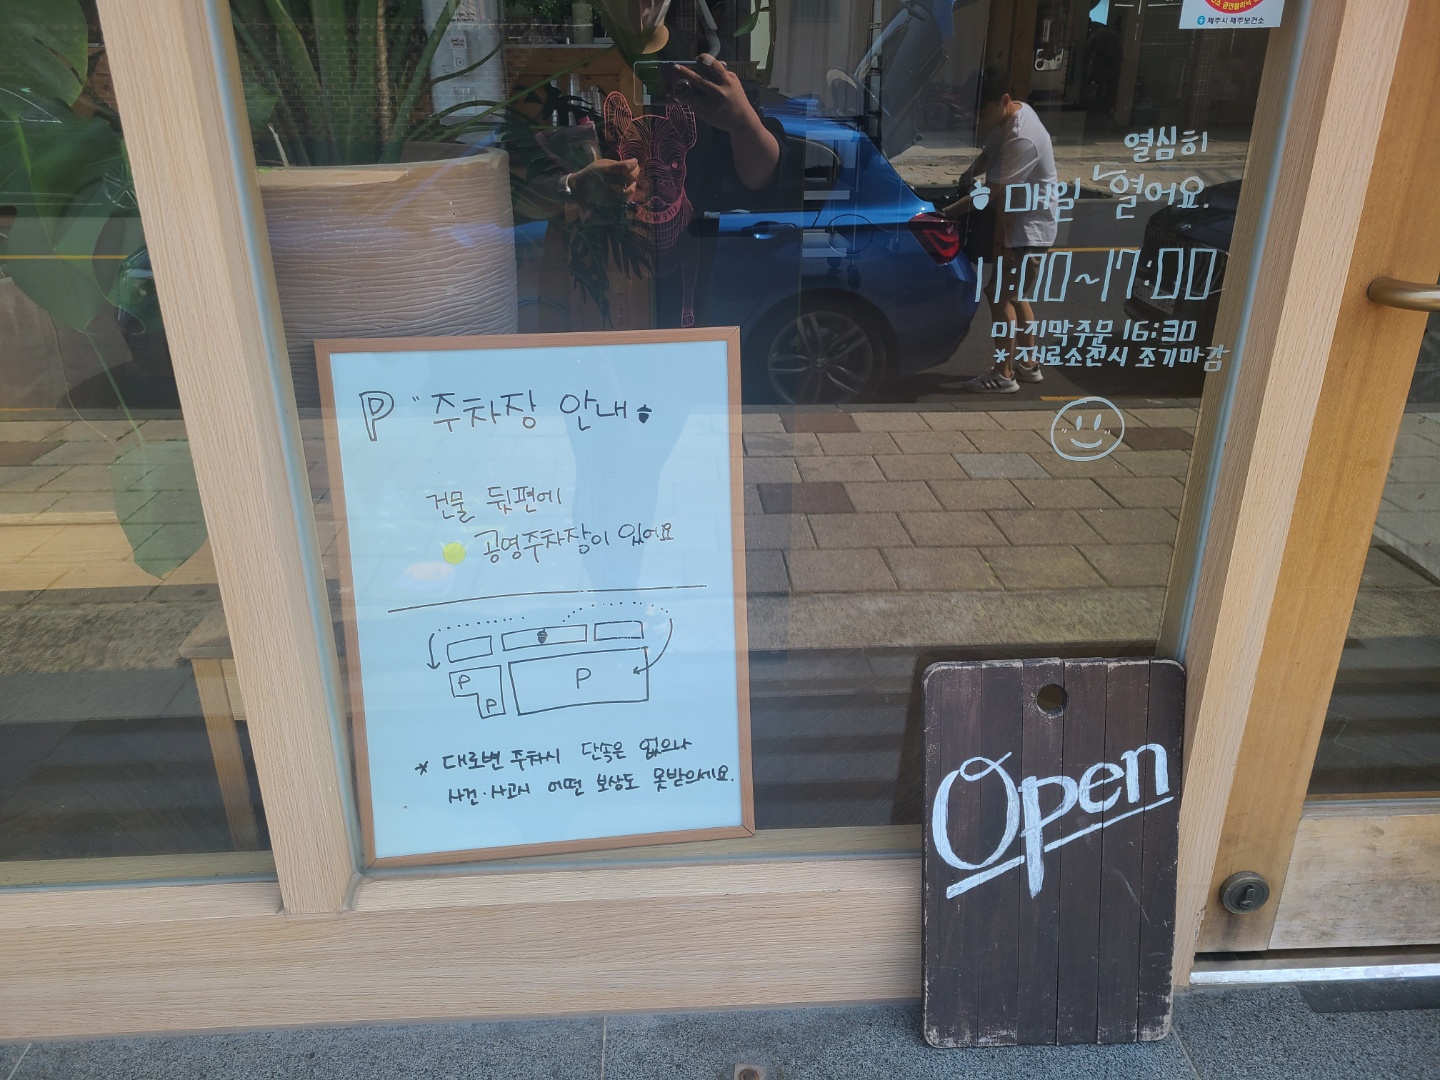 제주시 제주보건소
열심히
매일 열어요.
11:00~17:00
마지막주문 16:30
* 재료소진시 조기마감
P 주차장 안내
건물 뒷편에
공영주차장이 있어요
P
P
P
* 대로변 주차시 단속은 없으나
사건·사고시 어떤 보상도 못받으세요.
Open